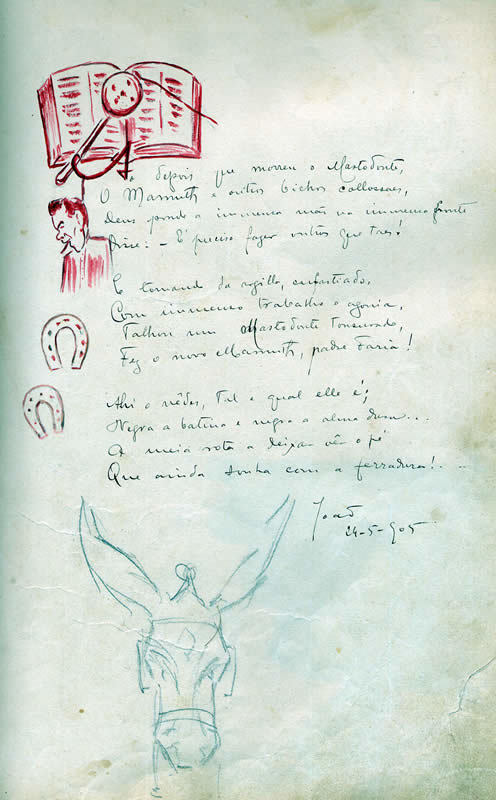 E depois que morreu o Mastodonte,
O Mammuth e outros bichos collossaes,
Deus pondo a immensa mão na immensa fronte
Disse: – É preciso fazer outros que taes!
E tomando da argilla, enfastiado,
Com immenso trabalho e agonia,
Talhou um Mastodonte tonsurado,
Fez o novo Mammuth, padre Faria!
Ahi o vêdes, tal e qual elle é;
Negra a batina e negra a alma
A meia rota a deixar vêr o pé
Que ainda sonha com a ferradura!...
João
24-5-905